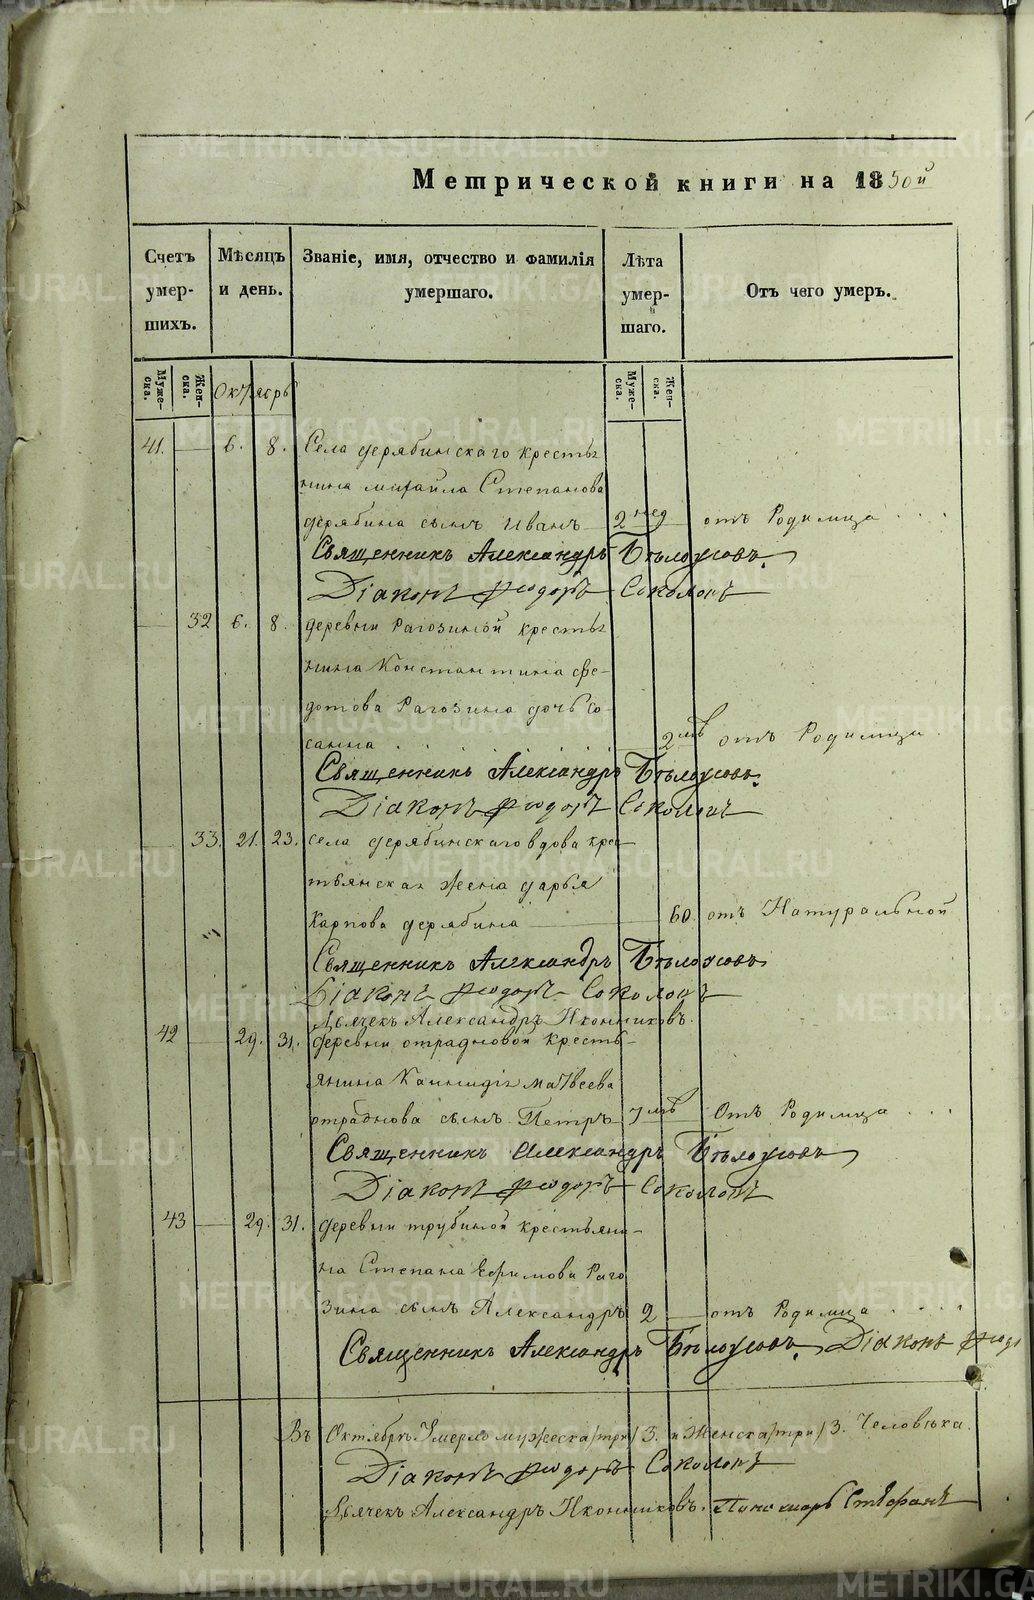 Метрической книги на 1850й
Счетъ умершихъ.
Мѣсяцъ и день.
Званіе, имя, отчество и фамилія умершаго.
Лѣта умершаго.
Отъ чего умеръ.
Мужеска.
Женска.
Октябрь
Мужеска.
Женска.
41. 6. 8. Села дерябинскаго крестья
нина михайла Степанова
дерябина сынъ Иванъ 2 нед отъ Родимца
Священникъ Александръ Бѣлоусовъ.
Діаконъ Ѳеодоръ Соколовъ
32 6. 8. деревни Рагозиной крестья
нина Константина Фе-
дотова Рагозина дочь Со-
санна 2 лѣ отъ Родимца
Священникъ Александръ Бѣлоусовъ.
Діаконъ Ѳеодоръ Соколовъ
33. 21. 23. села дерябинскаго вдова крес
тьянская жена дарья
Карпова дерябина 60. отъ Натуральной
Священникъ Александръ Бѣлоусовъ
Діаконъ Ѳеодоръ Соколовъ
Дьячекъ Александръ Иконниковъ.
42 29. 31. деревни отрадновой кресть-
янина матвеева
отраднова сынъ Петръ 7 лѣ Отъ Родимца
Священникъ Александръ Бѣлоусовъ
Діаконъ Ѳеодоръ Соколовъ
43 29. 31. деревни трубиной крестьяни-
на Степана Ефимова Раго
зина сынъ Александръ 2 отъ Родимца
Священникъ Александръ Бѣлоусовъ. Діаконъ Ѳеодо
Въ Октябрѣ Умерло мужеска /три/ 3. и Женска /три/ 3. Человѣка.
Діаконъ Ѳеодоръ Соколовъ
Дьячекъ Александръ Иконниковъ. Пономарь Стефанъ
METRIKI.GASO-URAL.RU